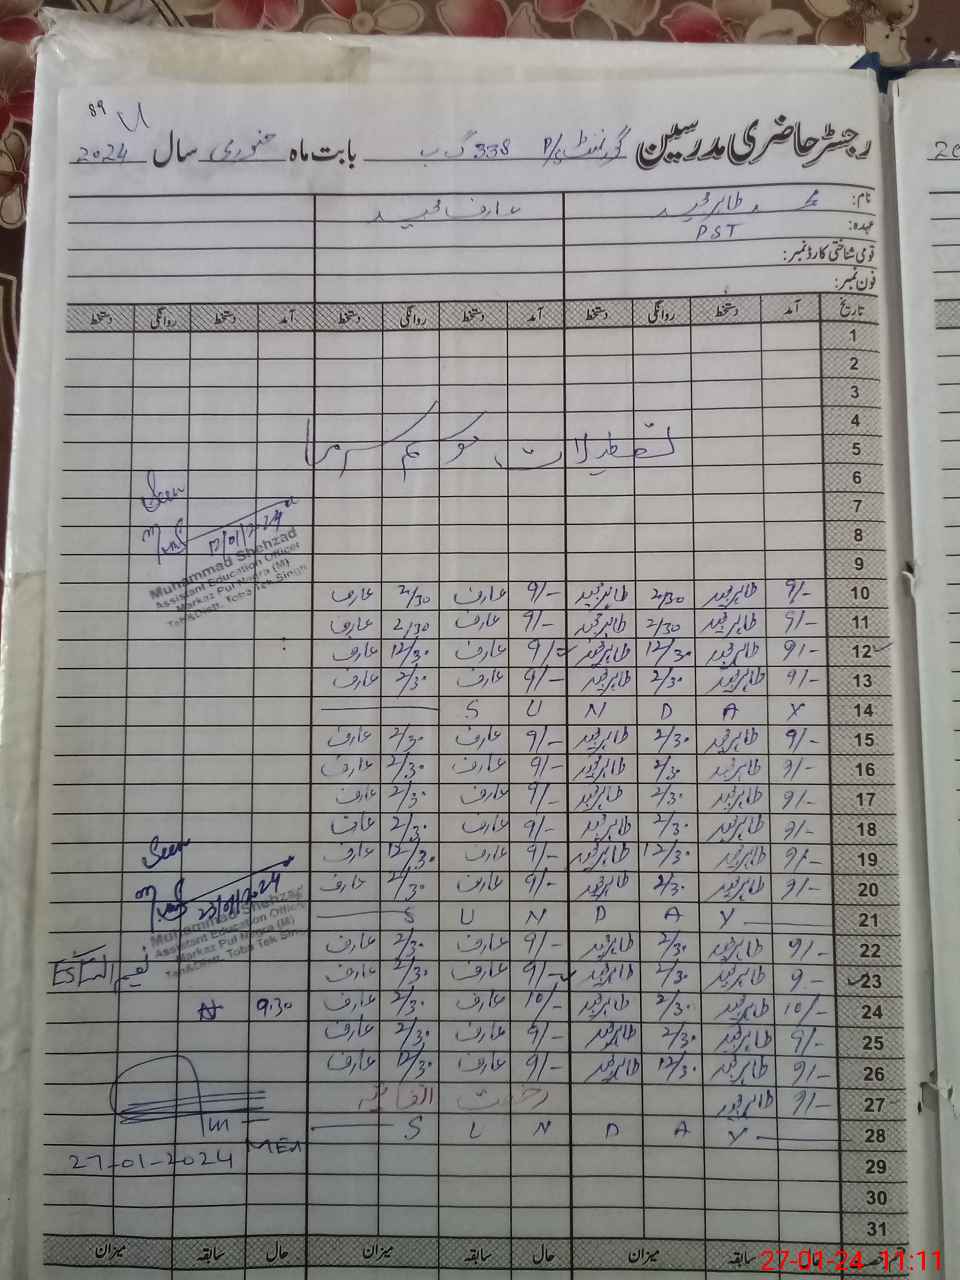 89
رجسٹر حاضری مدرسین گورنمنٹ P/S 338 گ ب بابت ماہ جنوری سال 2024
نام: محمد طاہر مجید عارف مجید
عہدہ: PST
قومی شناختی کارڈ نمبر:
فون نمبر:
تاریخ آمد دستخط روانگی دستخط آمد دستخط روانگی دستخط آمد دستخط روانگی دستخط
1
2
3
4
5 تعطیلات موسم سرما
6
Seen
7
8
Muhammad Shehzad
Assistant Education Officer
Markaz Pul Nagra (M)
Teh&Distt. Toba Tek Singh
9
10 9/- طاہر مجید 2/30 طاہر مجید 9/- عارف 2/30 عارف
11 9/- طاہر مجید 2/30 طاہر مجید 9/- عارف 2/30 عارف
12 9/- طاہر مجید 12/30 طاہر مجید 9/- عارف 12/30 عارف
13 9/- طاہر مجید 2/30 طاہر مجید 9/- عارف 2/30 عارف
14 S U N D A Y
15 9/- طاہر مجید 2/30 طاہر مجید 9/- عارف 2/30 عارف
16 9/- طاہر مجید 2/30 طاہر مجید 9/- عارف 2/30 عارف
17 9/- طاہر مجید 2/30 طاہر مجید 9/- عارف 2/30 عارف
18 9/- طاہر مجید 2/30 طاہر مجید 9/- عارف 2/30 عارف
19 9/- طاہر مجید 12/30 طاہر مجید 9/- عارف 12/30 عارف
Seen
20 9/- طاہر مجید 2/30 طاہر مجید 9/- عارف 2/30 عارف
23/01/2024
21 S U N D A Y
Muhammad Shehzad
Assistant Education Officer
Markaz Pul Nagra (M)
Teh&Distt. Toba Tek Singh
22 9/- طاہر مجید 2/30 طاہر مجید 9/- عارف 2/30 عارف
23 9- طاہر مجید 2/30 طاہر مجید 9/- عارف 2/30 عارف
24 10/- طاہر مجید 2/30 طاہر مجید 10/- عارف 2/30 عارف 9:30
25 9/- طاہر مجید 2/30 طاہر مجید 9/- عارف 2/30 عارف
26 9/- طاہر مجید 12/30 طاہر مجید 9/- عارف 12/30 عارف
27 9/- طاہر مجید رخصت اتفاقیہ
28 S U N D A Y
MEA
27-01-2024
29
30
31
حال سابقہ میزان حال سابقہ میزان حال سابقہ میزان
27-01-24 11:11